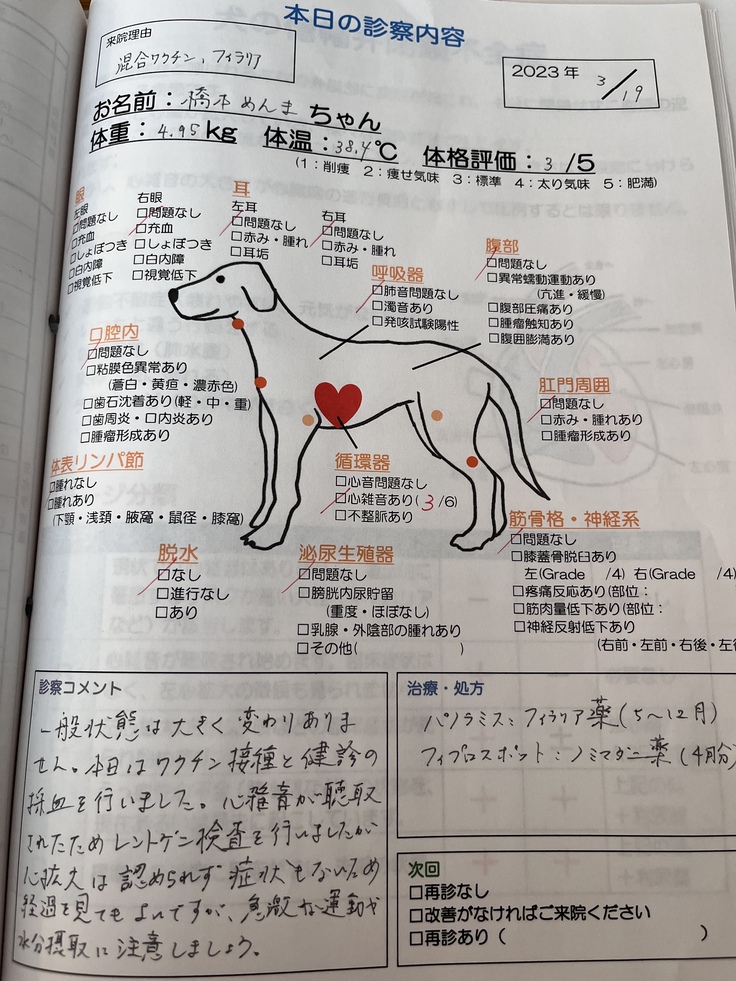 本日の診察内容
来院理由
混合ワクチン、フィラリア
2023年 3/19
お名前：橋本めんま ちゃん
体重：4.95kg 体温：38.4℃ 体格評価：3/5
(1：削痩 2：痩せ気味 3：標準 4：太り気味 5：肥満)
眼
左眼
□問題なし
□充血
□しょぼつき
□白内障
□視覚低下
右眼
□問題なし
□充血
□しょぼつき
□白内障
□視覚低下
耳
左耳
□問題なし
□赤み・腫れ
□耳垢
右耳
□問題なし
□赤み・腫れ
□耳垢
呼吸器
□肺音問題なし
□濁音あり
□発咳試験陽性
腹部
□問題なし
□異常蠕動運動あり
(亢進・緩慢)
□腹部圧痛あり
□腫瘤触知あり
□腹囲膨満あり
口腔内
□問題なし
□粘膜色異常あり
(蒼白・黄疸・濃赤色)
□歯石沈着あり(軽・中・重)
□歯周炎・口内炎あり
□腫瘤形成あり
肛門周囲
□問題なし
□赤み・腫れあり
□腫瘤形成あり
体表リンパ節
□腫れなし
□腫れあり
(下顎・浅頚・腋窩・鼠径・膝窩)
循環器
□心音問題なし
□心雑音あり(3/6)
□不整脈あり
筋骨格・神経系
□問題なし
□膝蓋骨脱臼あり
左(Grade /4) 右(Grade /4)
□疼痛反応あり(部位：
□筋肉量低下あり(部位：
□神経反射低下あり
(右前・左前・右後・左後
脱水
□なし
□進行なし
□あり
泌尿生殖器
□問題なし
□膀胱内尿貯留
(重度・ほぼなし)
□乳腺・外陰部の腫れあり
□その他( )
診察コメント
一般状態は大きく変わりありま
せん。本日はワクチン接種と健診の
採血を行いました。心雑音が聴取
されたためレントゲン検査を行いましたが
心拡大は認められず症状もないため
経過を見てもよいですが、急激な運動や
水分摂取に注意しましょう。
治療・処方
パノラミス：フィラリア薬(5〜12月)
フィプロスポット：ノミマダニ薬(4月分)
次回
□再診なし
□改善がなければご来院ください
□再診あり( )